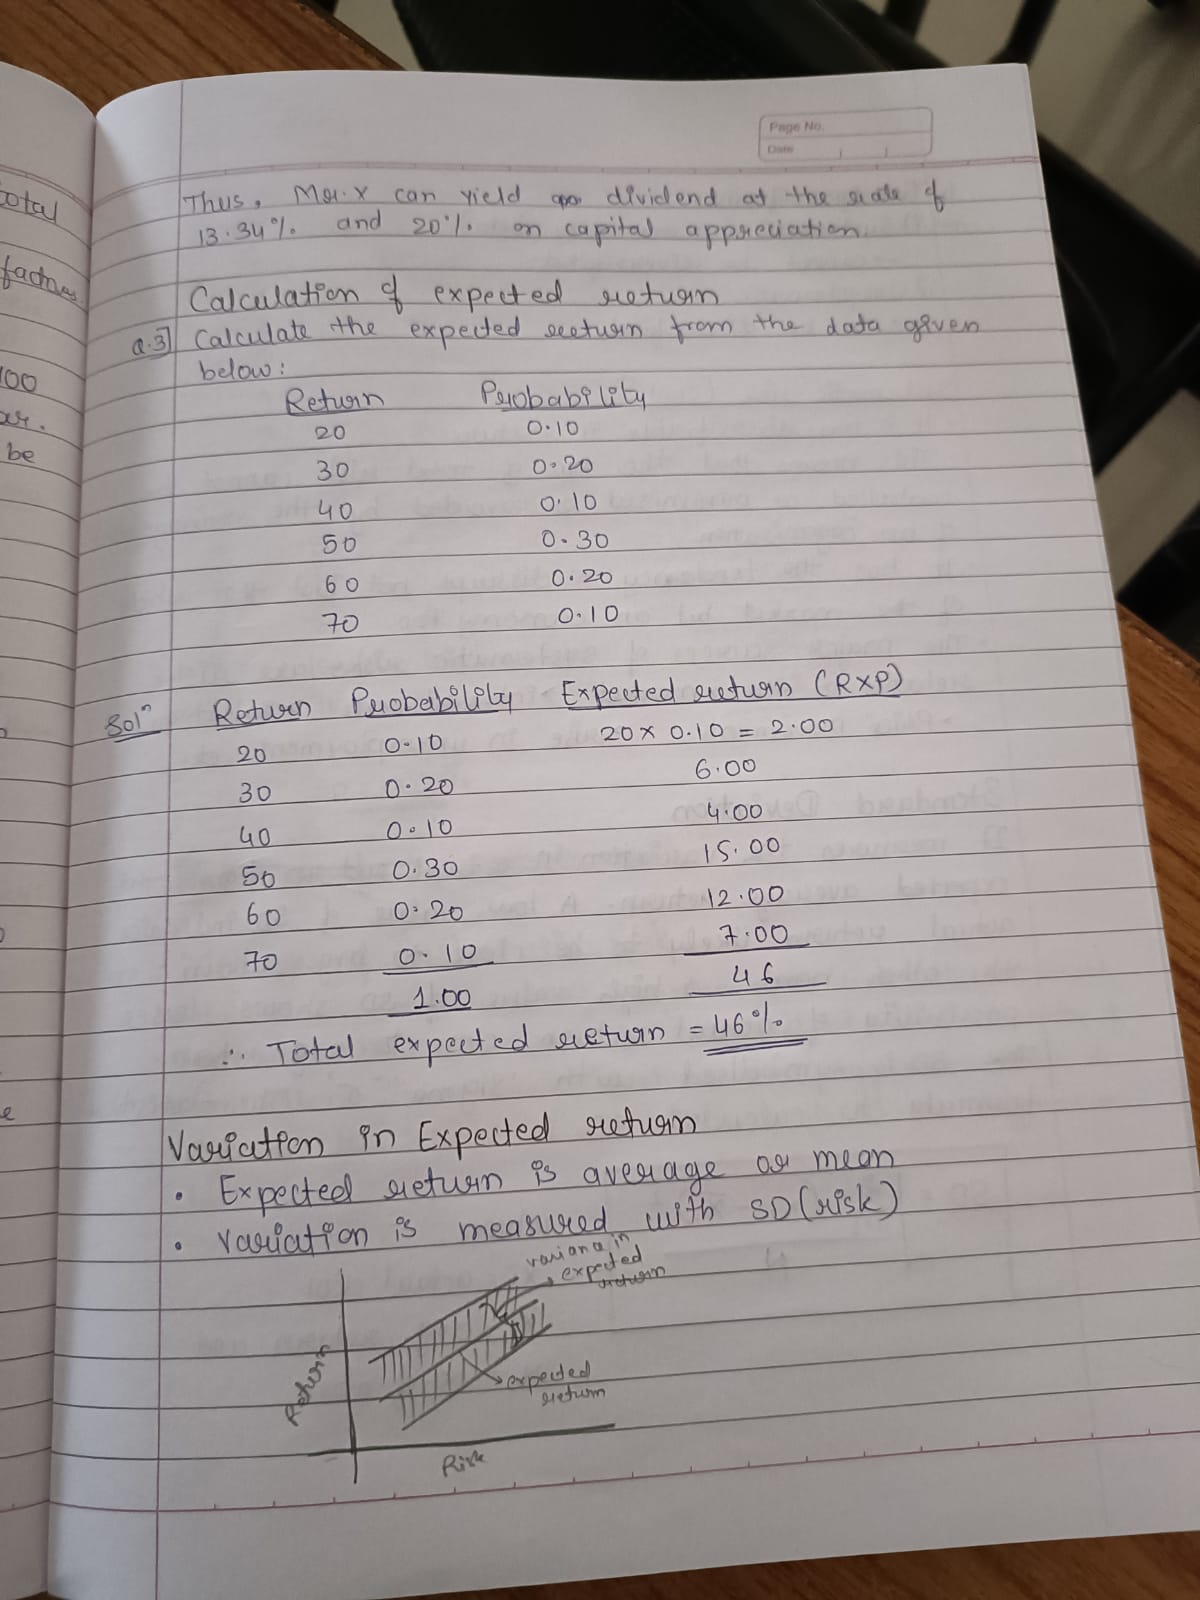 otal
factors
100
ar.
be
e
Page No.
Date
Thus, Mr. X can yield dividend at the rate of
13.34% and 20% on capital appreciation.
Calculation of expected return
Q.3] Calculate the expected return from the data given
below:
Return Probability
20 0.10
30 0.20
40 0.10
50 0.30
60 0.20
70 0.10
Solⁿ Return Probability Expected return (R×P)
20 0.10 20 × 0.10 = 2.00
30 0.20 6.00
40 0.10 4.00
50 0.30 15.00
60 0.20 12.00
70 0.10 7.00
1.00 46
∴ Total expected return = 46%
Variation in Expected return
• Expected return is average or mean
• Variation is measured with SD (risk)
in
expected
return
Return
expected
return
Risk